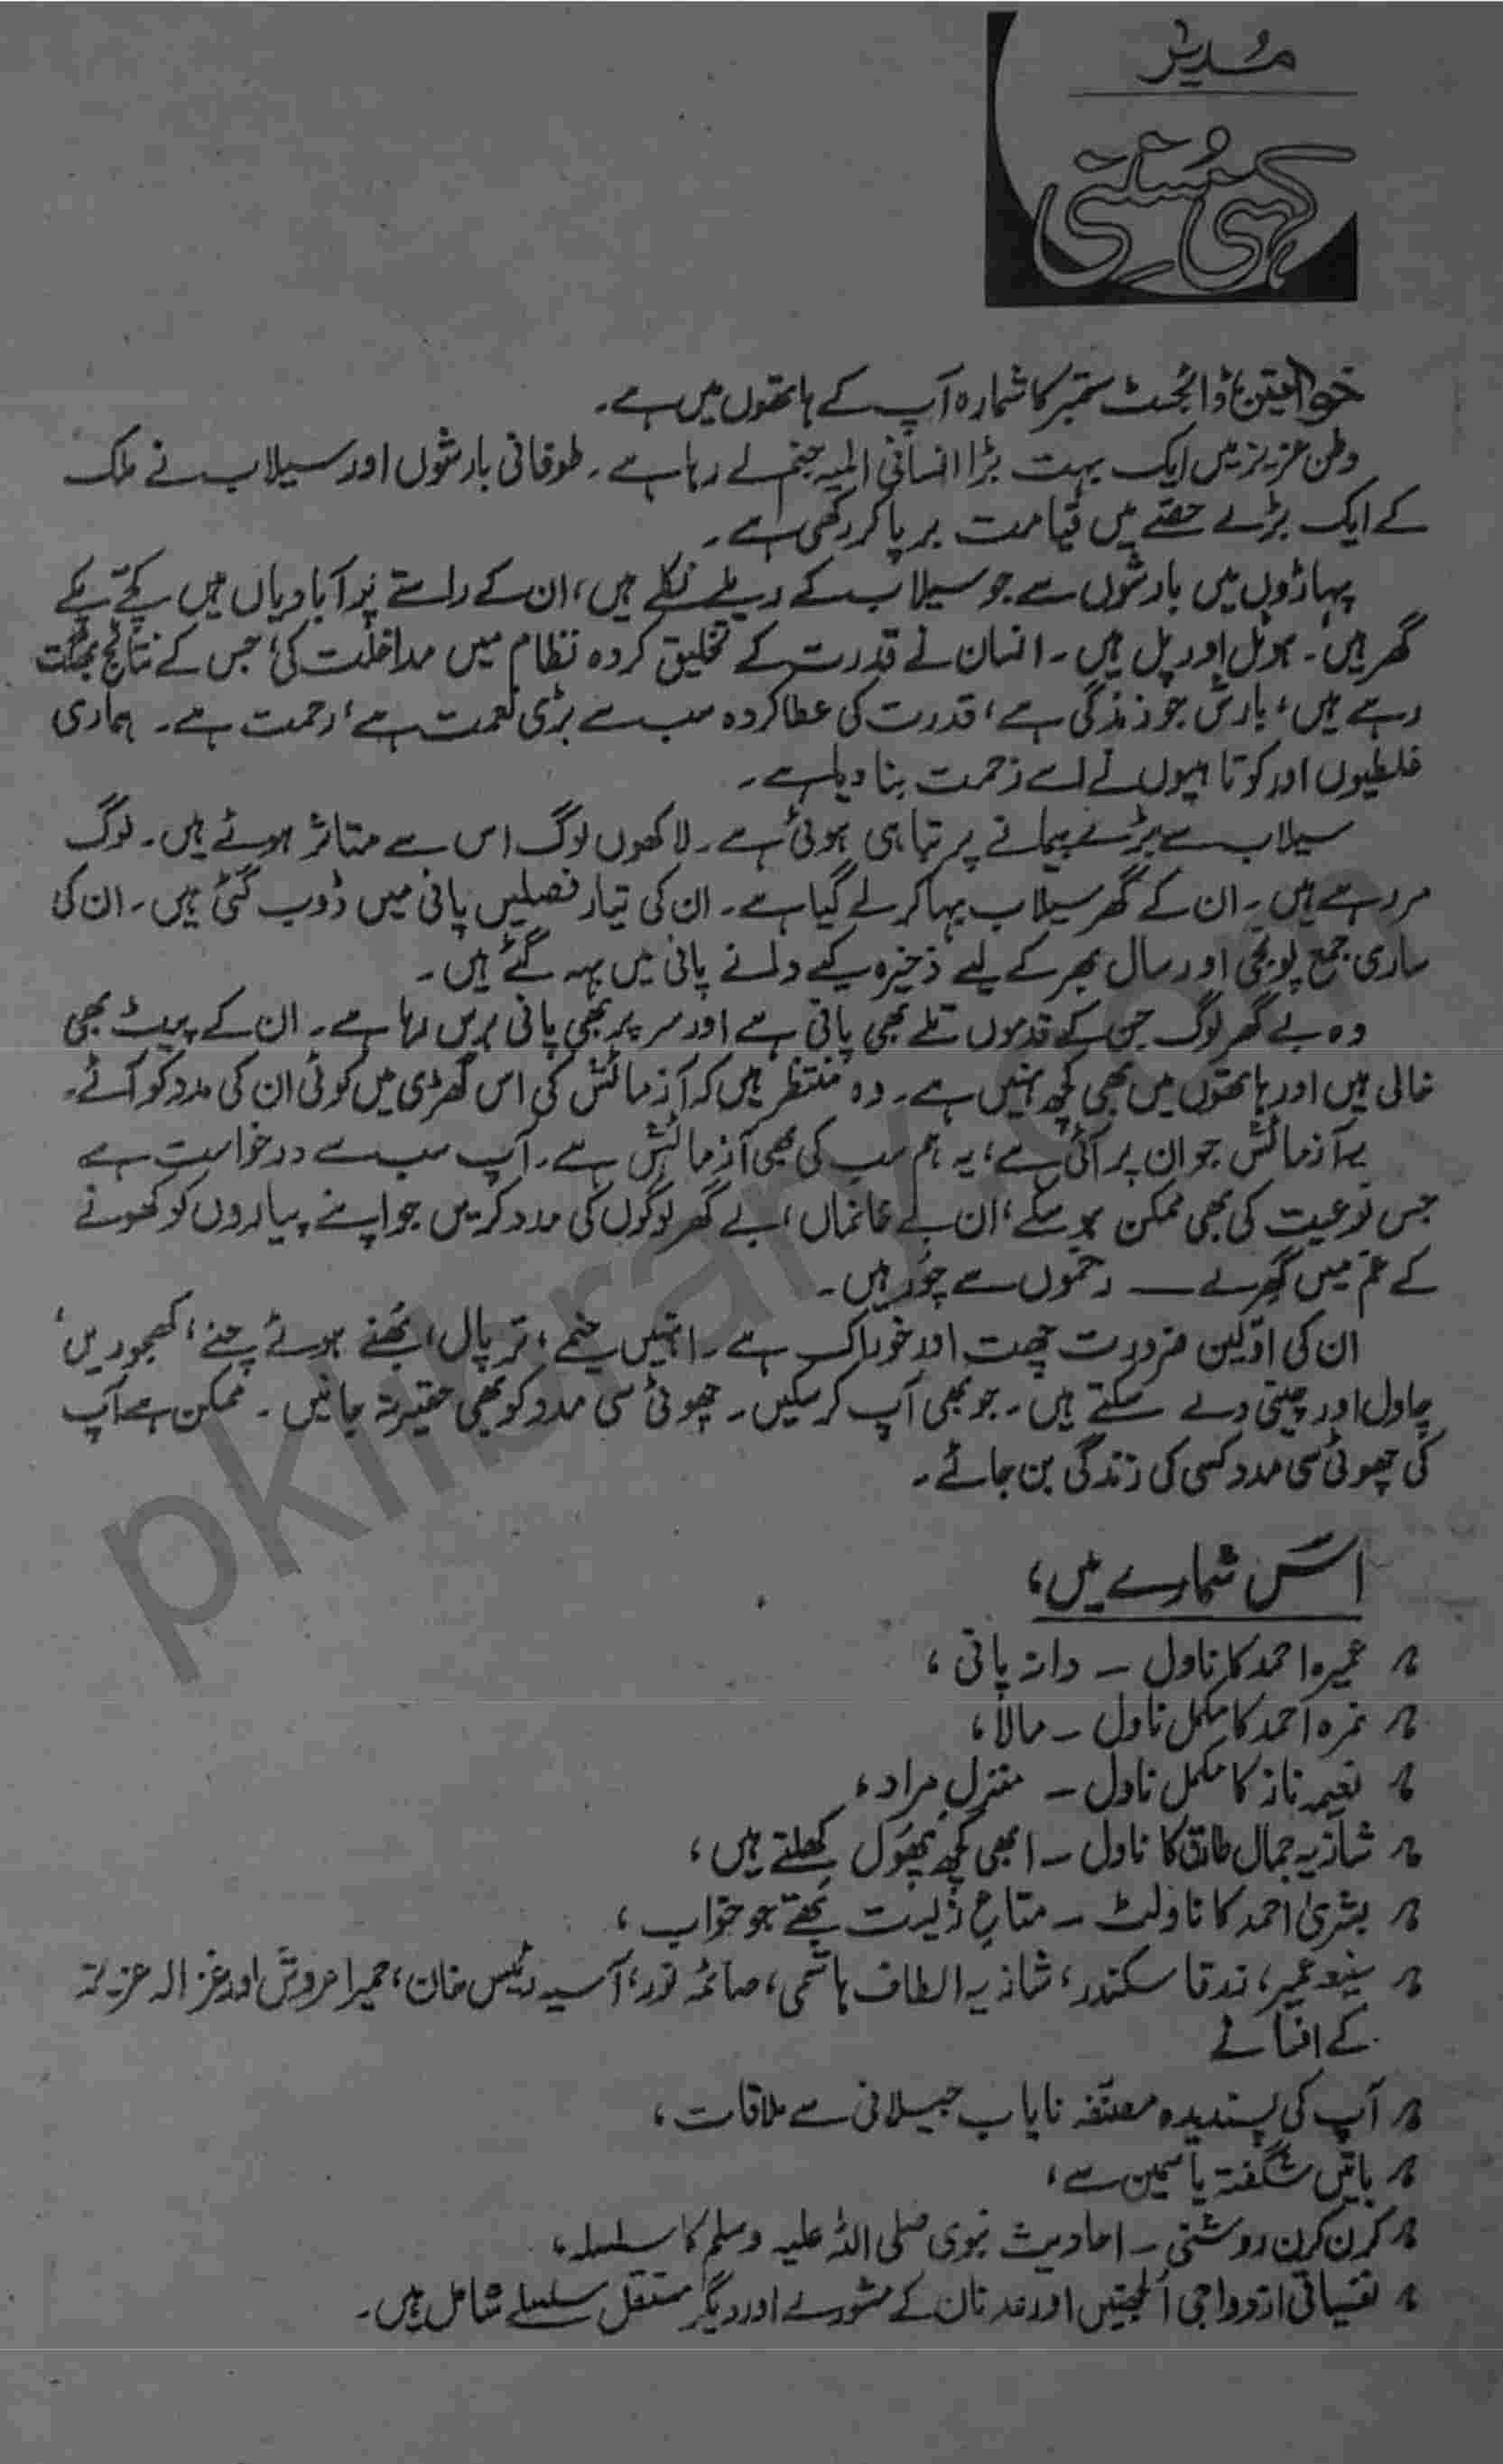 مُدیر
کہی سُنی
خواتین ڈائجسٹ ستمبر کا شمارہ آپ کے ہاتھوں میں ہے۔
وطن عزیز میں ایک بہت بڑا انسانی المیہ جنم لے رہا ہے۔ طوفانی بارشوں اور سیلاب نے ملک
کے ایک بڑے حصے میں قیامت برپا کر رکھی ہے۔
پہاڑوں میں بارشوں سے جو سیلاب کے ریلے نکلے ہیں، ان کے راستے پر آبادیاں ہیں کچے پکے
گھر ہیں۔ ہوٹل اور پل ہیں۔ انسان نے قدرت کے تخلیق کردہ نظام میں مداخلت کی، جس کے نتائج بھگت
رہے ہیں، بارش جو زندگی ہے، قدرت کی عطا کردہ سب سے بڑی نعمت ہے، رحمت ہے۔ ہماری
غلطیوں اور کوتاہیوں نے اسے زحمت بنا دیا ہے۔
سیلاب سے بڑے پیمانے پر تباہی ہوئی ہے۔ لاکھوں لوگ اس سے متاثر ہوئے ہیں۔ لوگ
مر رہے ہیں۔ ان کے گھر سیلاب بہا کر لے گیا ہے۔ ان کی تیار فصلیں پانی میں ڈوب گئی ہیں۔ ان کی
ساری جمع پونجی اور سال بھر کے لیے ذخیرہ کیے دانے پانی میں بہہ گئے ہیں۔
وہ بے گھر لوگ جن کے قدموں تلے بھی پانی ہے اور سر پر بھی پانی برس رہا ہے۔ ان کے پیٹ بھی
خالی ہیں اور ہاتھوں میں بھی کچھ نہیں ہے۔ وہ منتظر ہیں کہ آزمائش کی اس گھڑی میں کوئی ان کی مدد کو آئے۔
یہ آزمائش جو ان پر آئی ہے، یہ ہم سب کی بھی آزمائش ہے۔ آپ سب سے درخواست ہے
جس نوعیت کی بھی ممکن ہو سکے، ان بے خانماں، بے گھر لوگوں کی مدد کریں جو اپنے پیاروں کو کھونے
کے غم میں گھرے ــ زخموں سے چُور ہیں۔
ان کی اوّلین ضرورت چھت اور خوراک ہے۔ انہیں خیمے، ترپال، بُھنے ہوئے چنے، کھجوریں،
چاول اور چینی دے سکتے ہیں۔ جو بھی آپ کر سکیں۔ چھوٹی سی مدد کو بھی حقیر نہ جانیں۔ ممکن ہے آپ
کی چھوٹی سی مدد کسی کی زندگی بن جائے۔
اس شمارے میں،
عمیرہ احمد کا ناول ـ دانہ پانی،
نمرہ احمد کا مکمل ناول ـ مالا،
نعیمہ ناز کا مکمل ناول ـ منزلِ مراد،
شازیہ جمال طارق کا ناول ـ ابھی کچھ پھول کھلتے ہیں،
بشریٰ احمد کا ناولٹ ـ متاعِ زیست تھے جو خواب،
عمیر، سکندر، شازیہ الطاف ہاشمی، صائمہ نور، آسیہ رئیس خان، حمیرا عروش اور غزالہ عزیز
کے افسانے
آپ کی پسندیدہ مصنفہ نایاب جیلانی سے ملاقات،
باتیں شگفتہ یاسمین سے،
کرن کرن روشنی ـ احادیث نبوی صلی اللہ علیہ وسلم کا سلسلہ،
نفسیاتی ازدواجی اُلجھنیں اور عدنان کے مشورے اور دیگر مستقل سلسلے شامل ہیں۔
pklibrary.com